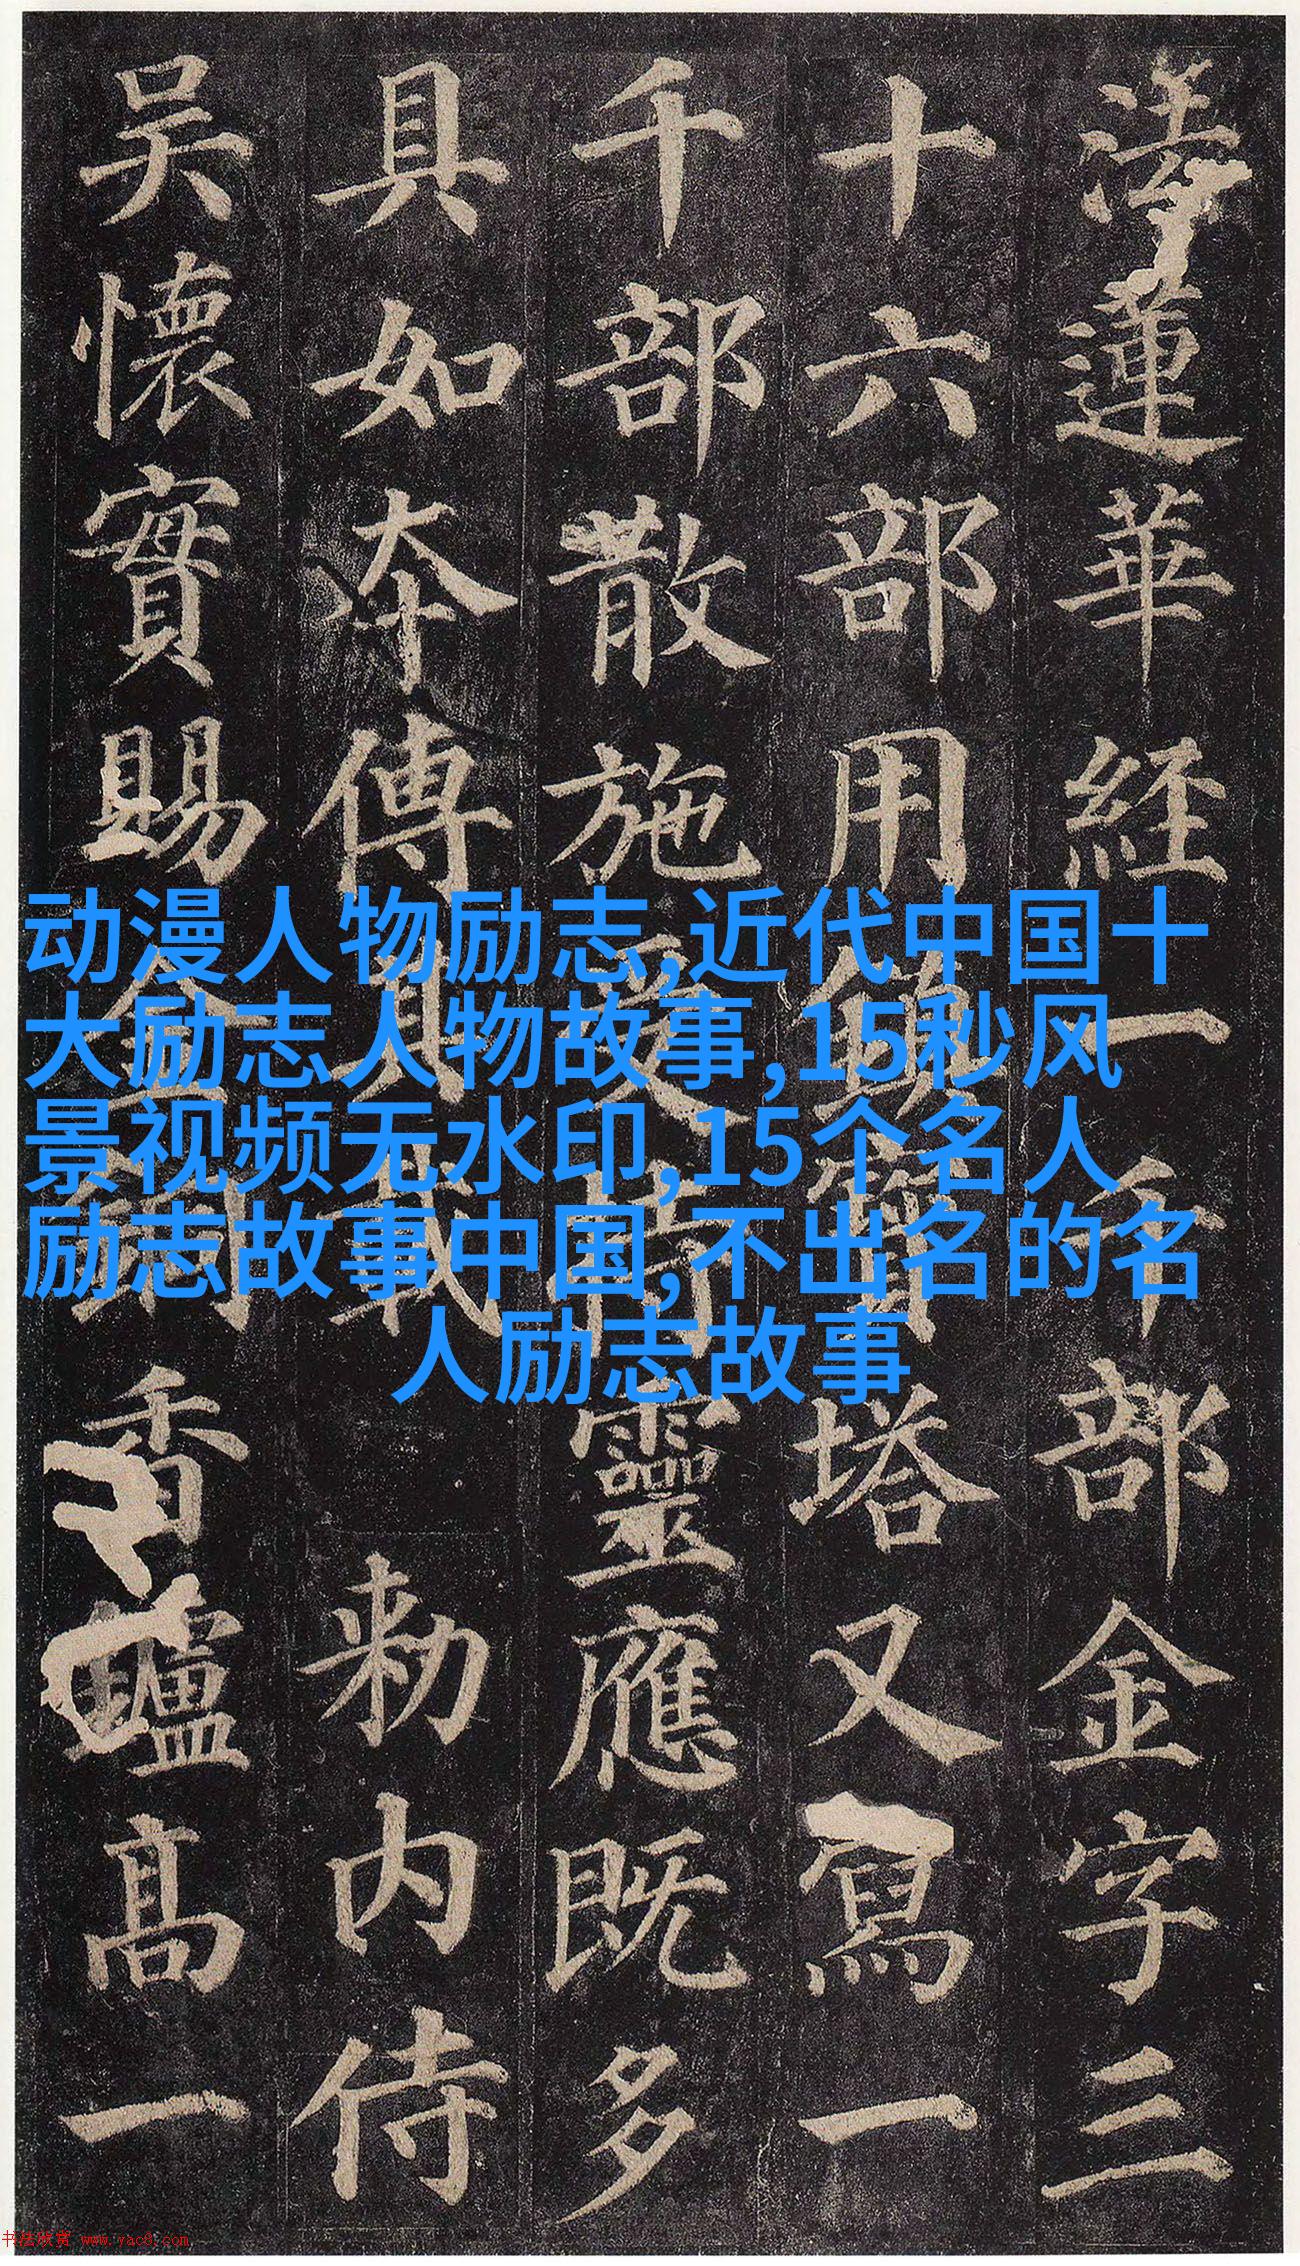 法蓮華経一千部金字三
十六部用鎮寶塔又寫一
千部散施受持靈應既多
具如夲傳其載 勑内侍
吳懷實賜金銅香鑪髙一
动漫人物励志,近代中国十
大励志人物故事,15秒风
景视频无水印,15个名人
励志故事中国,不出名的名
人励志故事
书法欣赏 www.yac8.com